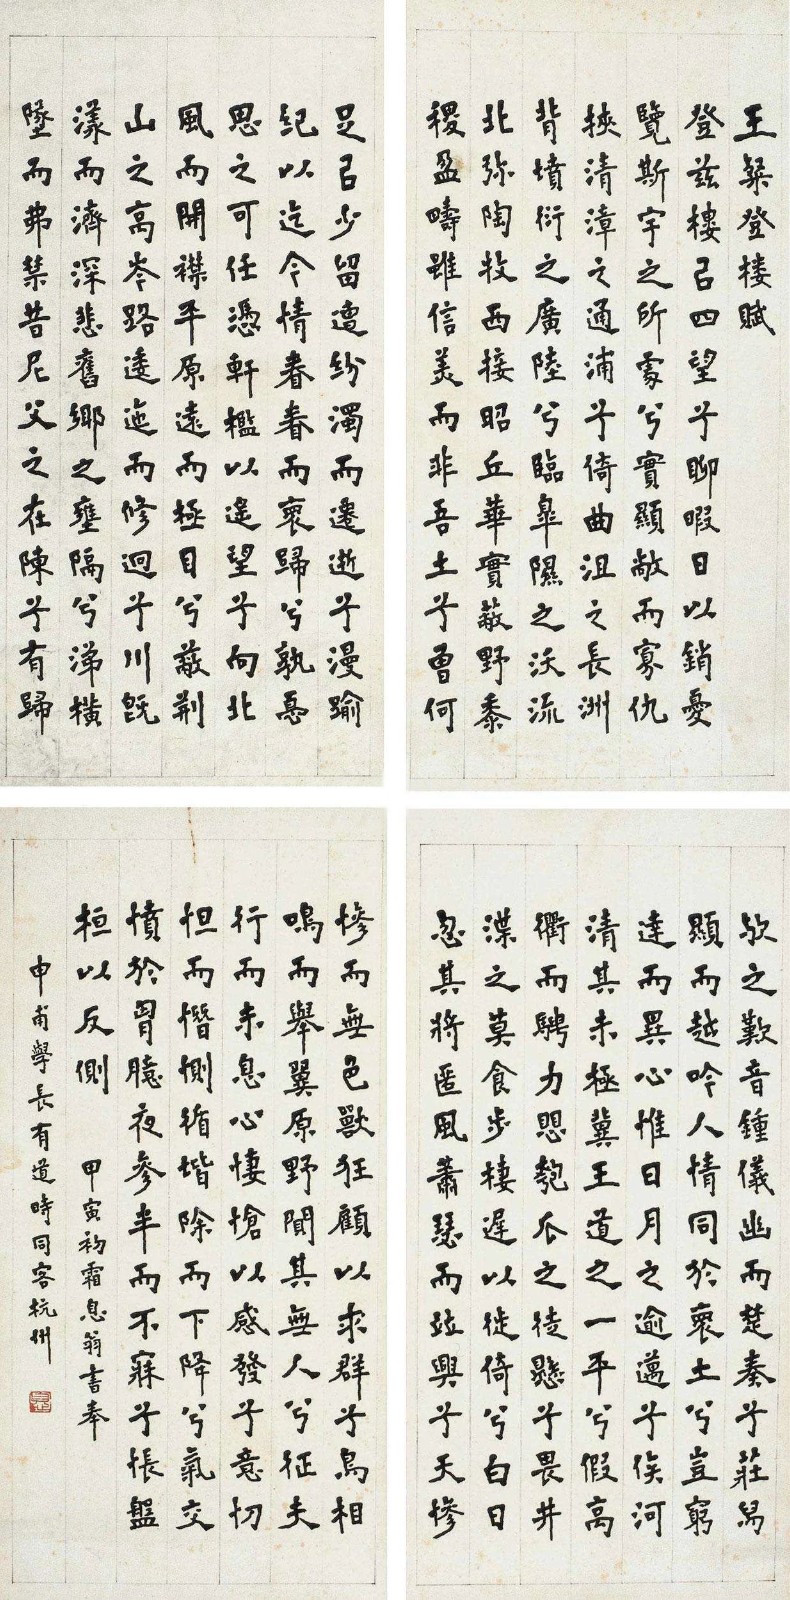 王粲登楼賦
登茲樓㠯四望兮聊暇日以銷憂
覽斯宇之所處兮實顯敞而寡仇
挾清漳之通浦兮倚曲沮之長洲
背墳衍之廣陸兮臨皋隰之沃流
北弥陶牧西接昭丘華實蔽野黍
稷盈疇雖信美而非吾土兮曾何
足㠯少留遭紛濁而遷逝兮漫踰
紀以迄今情眷眷而褱歸兮孰憂
思之可任憑軒檻以遥望兮向北
風而開襟平原遠而極目兮蔽荆
山之高岑路逶迤而修迥兮川既
漾而濟深悲舊鄉之壅隔兮涕橫
墜而弗禁昔尼父之在陳兮有歸
欤之歎音鍾儀幽而楚奏兮莊舄
顯而越吟人情同於褱土兮豈窮
達而異心惟日月之逾邁兮俟河
清其未極冀王道之一平兮假高
衢而騁力思匏瓜之徒懸兮畏井
渫之莫食步棲遲以徙倚兮白日
忽其將匿風蕭瑟而竝興兮天慘
慘而無色獸狂顧以求群兮鳥相
鳴而舉翼原野闃其無人兮征夫
行而未息心悽愴以感發兮意忉
怛而憯惻循堦除而下降兮氣交
憤於胷臆夜參半而不寐兮悵盤
桓以反側 甲寅初霜息翁書奉
申甫學長有道時同客杭州